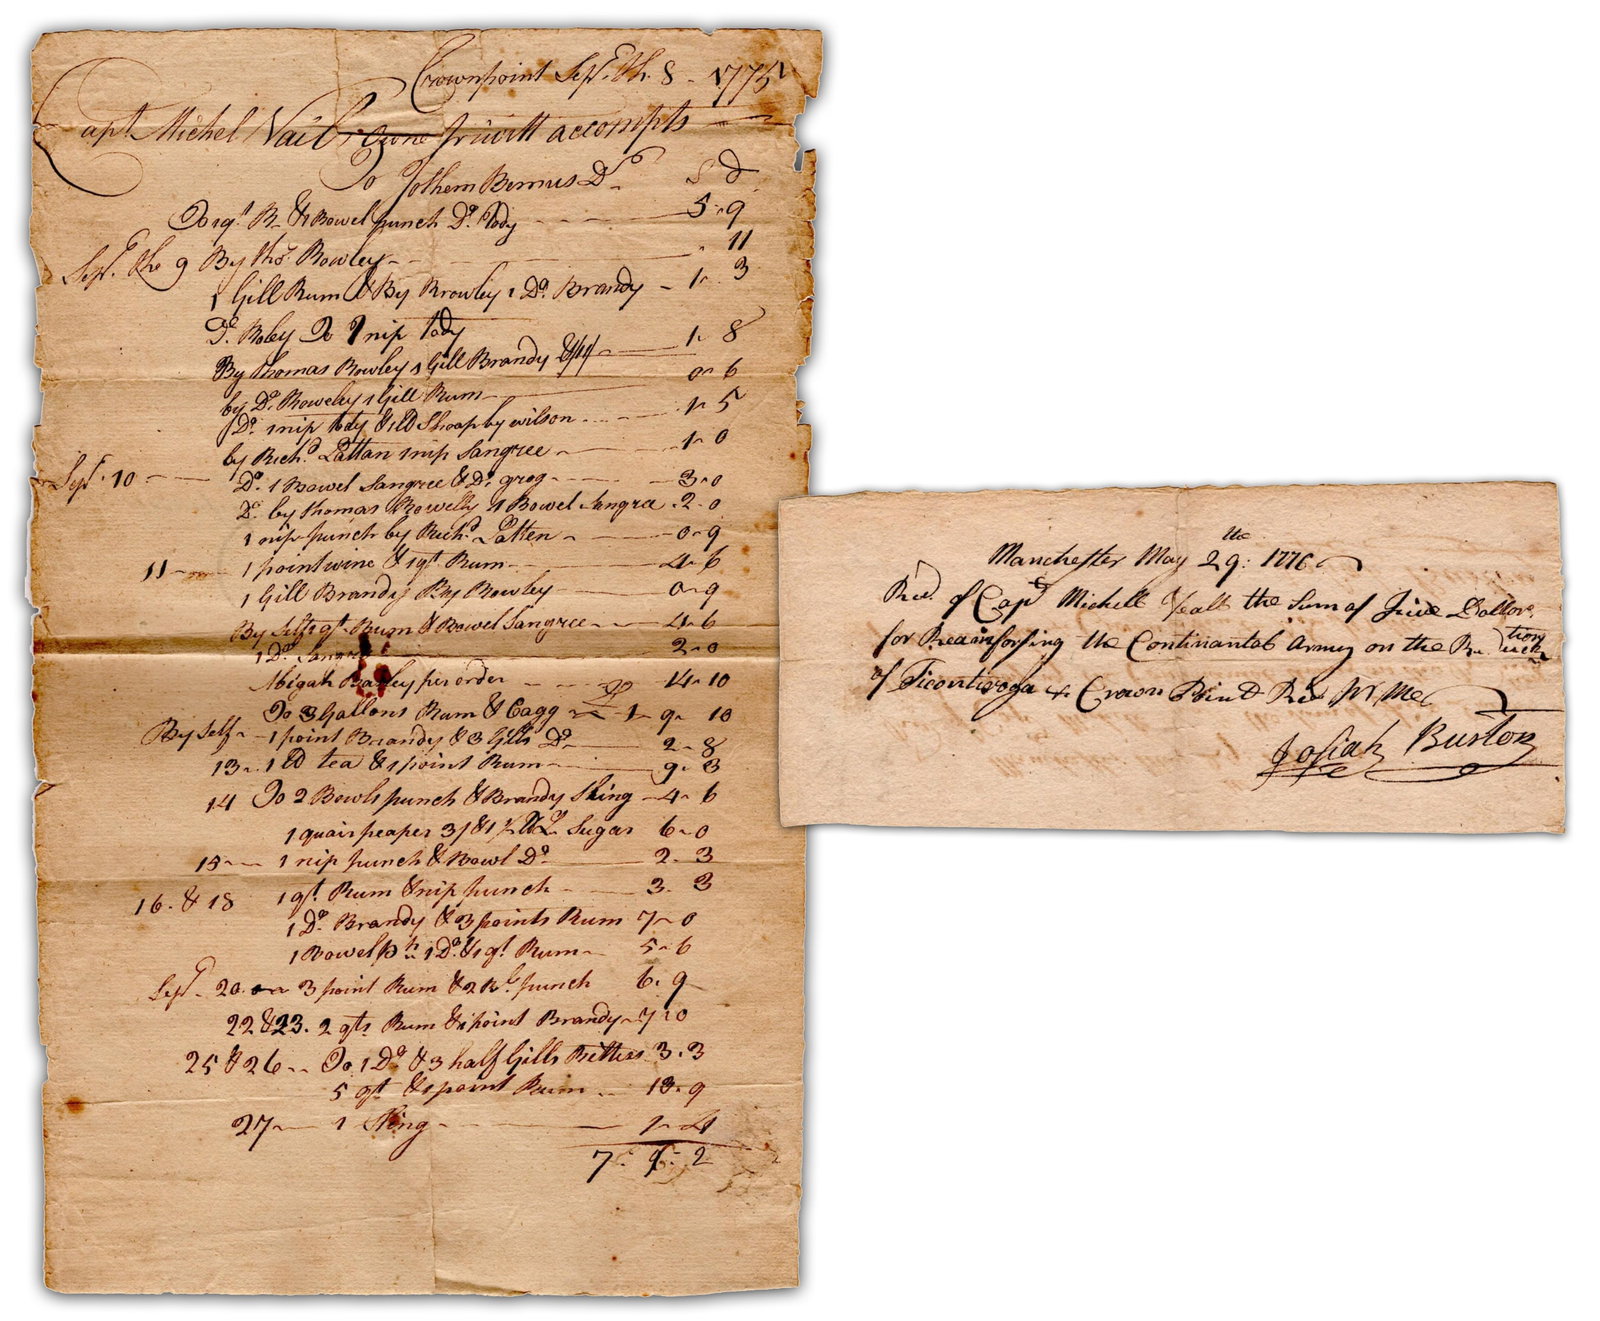 Crownpoint Sept. th. 8 - 1775
Capt. Michel Vail accompts
To Jothem Bemus Dr S D
To 1 qt R & 1 Bowel punch Do tody 5 " 9
Sept. the 9 By Thos. Rowley " 11
1 Gill Rum & By Rowley 1 Do. Brandy 1 " 3
Do. Roley To 1 nip tody
By Thomas Rowley 1 Gill Brandy 1 " 8
by Do. Roweley 1 Gill Rum 0 " 6
Do. 1 nip tody & 1 lb Shoap by wilson 1 " 5
by Richd. Lattan 1 nip Sangree 1 " 0
Sept. 10 Do. 1 Bowel Sangree & Do. grog 3 " 0
Do. by Thomas Rowelly 1 Bowel Sangree 2 " 0
1 nip punch by Richd. Latten 0 " 9
11 1 point wine & 1 qt Rum 4 " 6
1 Gill Brandy By Rowley 0 " 9
By Self 1 qt Rum & Bowel Sangree 4 " 6
1 Do. Sangree 2 " 0
Abigah per order 14 " 10
To 3 Gallons Rum & Cagg 1 " 9 " 10
By Self 1 point Brandy & 3 Gills Do. 2 " 8
13 1 lb tea & 1 point Rum 9 " 3
14 To 2 Bowls punch & Brandy Sling 4 " 6
1 quair peaper 3/ & 1 1/2 lb Sugar 6 " 0
15 1 nip punch & Bowl Do. 2 " 3
16. & 18 1 qt. Rum & nip punch 3 " 3
1 Do. Brandy & 3 points Rum 7 " 0
1 Bowel ph 1 Do. & 1 qt. Rum 5 " 6
Sept. 20 3 point Rum & 2 punch 6 " 9
22 & 23. 2 qts Rum & 1 point Brandy 7 " 0
25 & 26 To 1 Do. & 3 half Gills Bitters 3 " 3
5 qt & 1 point Rum 13 " 9
27 1 Sling 1 " 4
7 " 9 " 2
Manchester May 29 the: 1776
Recd. of Capt Michell Veall the Sum of five Dollors
for Reainforsing the Continantal Army on the
of Ticontiroga & Crown Point Recd Pr Me
Josiah Burton